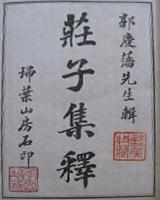 郭慶藩先生輯
莊子集釋
掃葉山房石印